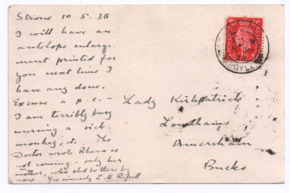 Strone 10.5.38
I will have an
antelope enlarge-
ment printed for
you next time I
have any done.
Excuse a p.c. –
I am terribly busy
nursing a sick
monkey, &. The
Doctor wrote Rhena is
not coming – only her
mother, who
Yours sincerely E. M.
Lady Kirkpatrick
Lowlands
Amersham
Bucks